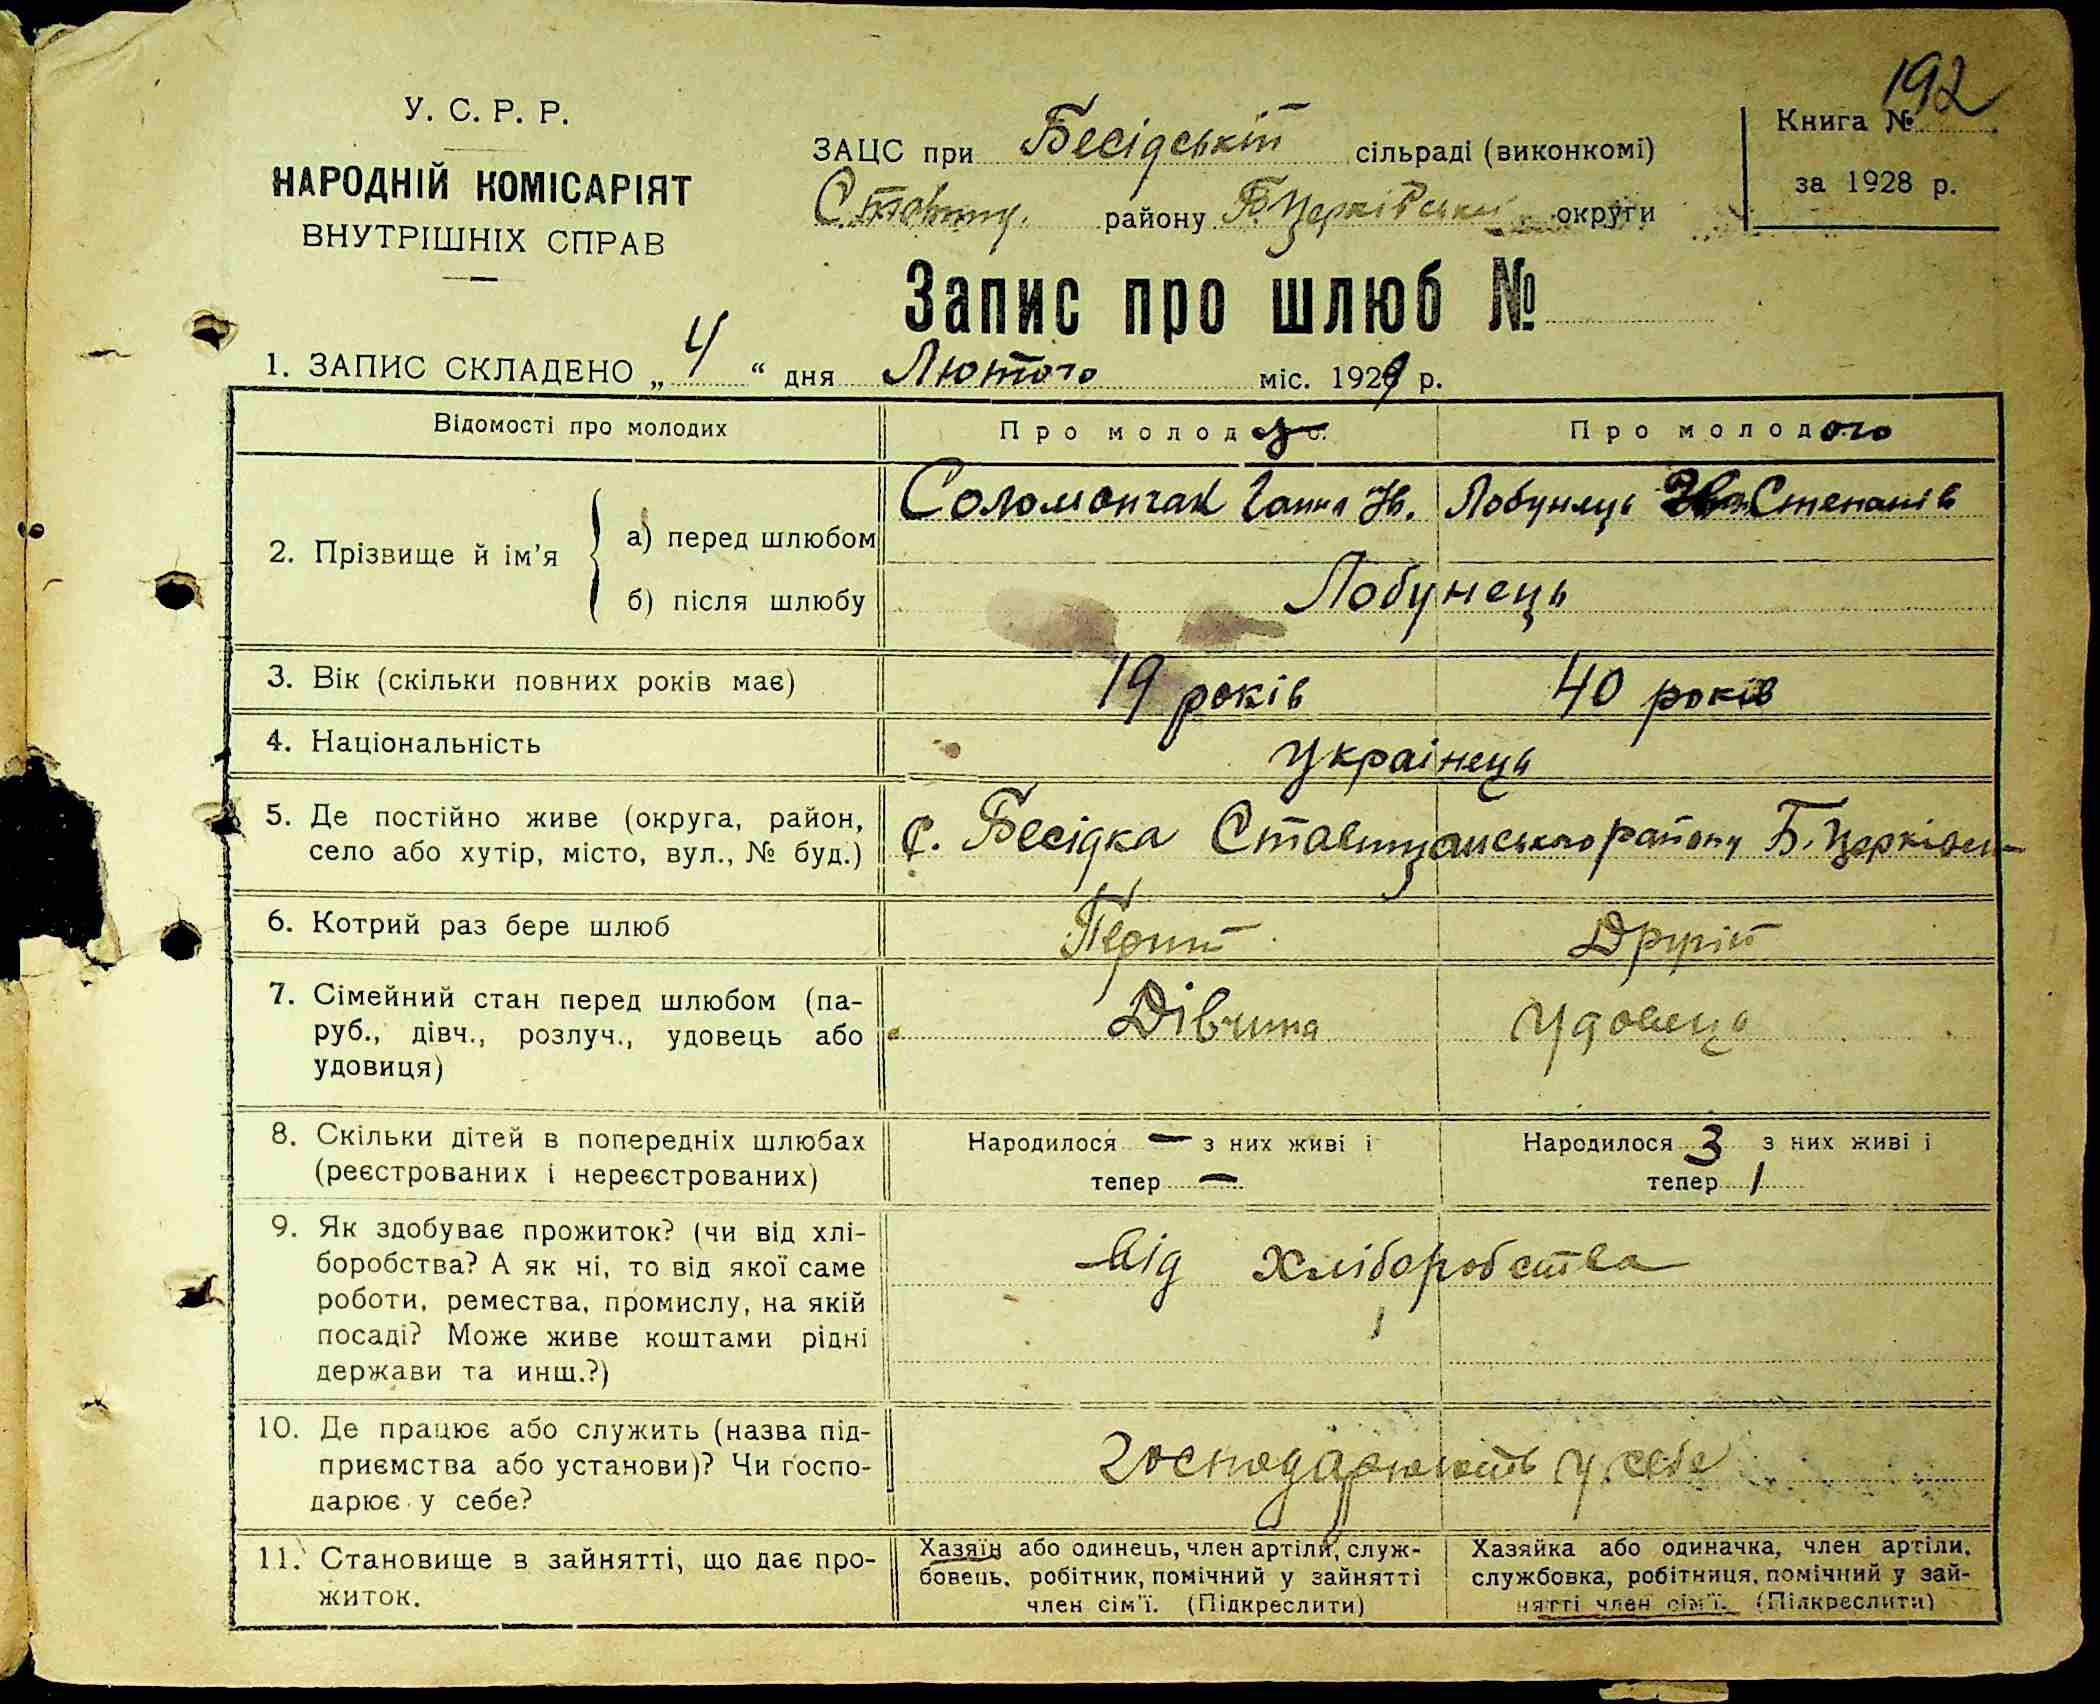 192
У. С. Р. Р.
НАРОДНІЙ КОМІСАРІЯТ
ВНУТРІШНІХ СПРАВ
ЗАЦС при Бесідській сільраді (виконкомі)
району Б Церківської округи
Книга №
за 1928 р.
Запис про шлюб №
1. ЗАПИС СКЛАДЕНО „ 4 “ дня Лютого міс. 1929 р.
Відомості про молодих
Про молоду
Про молодого
2. Прізвище й ім’я
а) перед шлюбом
Соломончак Ганна Ів.
Лобунець Степанів
б) після шлюбу
Лобунець
3. Вік (скільки повних років має)
19 років
40 років
4. Національність
Українець
5. Де постійно живе (округа, район,
село або хутір, місто, вул., № буд.)
с. Бесідка Ставищанського району Б. Церківсь
6. Котрий раз бере шлюб
Перший
Другий
7. Сімейний стан перед шлюбом (па-
руб., дівч., розлуч., удовець або
удовиця)
Дівчина
Удовець
8. Скільки дітей в попередніх шлюбах
(реєстрованих і нереєстрованих)
Народилося — з них живі і
тепер —
Народилося 3 з них живі і
тепер 1
9. Як здобуває прожиток? (чи від хлі-
боробства? А як ні, то від якої саме
роботи, ремества, промислу, на якій
посаді? Може живе коштами рідні
держави та инш.?)
від хліборобства
10. Де працює або служить (назва під-
приємства або установи)? Чи госпо-
дарює у себе?
господарюють у себе
11. Становище в зайнятті, що дає про-
житок.
Хазяїн або одинець, член артіли, служ-
бовець, робітник, помічний у зайнятті
член сім’ї. (Підкреслити)
Хазяйка або одиначка, член артіли,
службовка, робітниця, помічний у зай-
нятті член сім’ї. (Підкреслити)